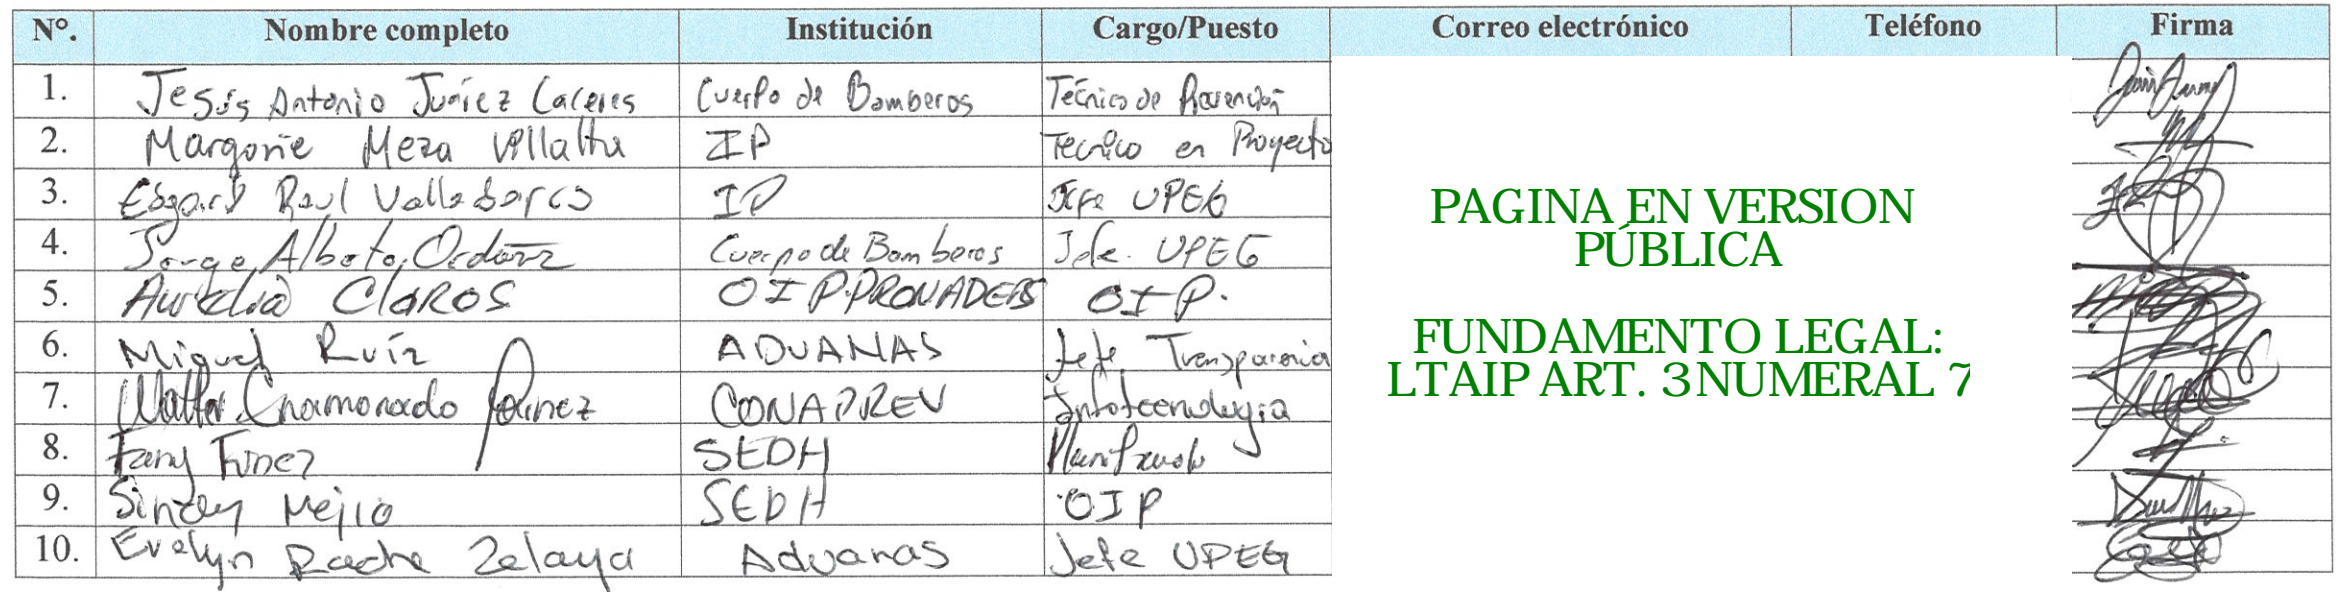 N°. Nombre completo Institución Cargo/Puesto Correo electrónico Teléfono Firma
1. Jesús Antonio Juárez Caceres Cuerpo de Bomberos Técnico de Prevención
2. Margorie Meza Villalta IP Tecnico en Proyecto
3. Edgard Raul Valladares IP Jefe UPEG
4. Jorge Alberto Ordoñez Cuerpo de Bomberos Jefe. UPEG
5. Aurelia Claros OIP-PRONADERS OIP.
6. Miguel Ruíz ADUANAS Jefe Transparencia
7. Walter Enamorado CONAPREV Infotecnologia
8. Fany Funez SEDH
9. Sindy Mejia SEDH OIP
10. Evelyn Zelaya Aduanas Jefe UPEG
PAGINA EN VERSION
PÚBLICA
FUNDAMENTO LEGAL:
LTAIP ART. 3 NUMERAL 7